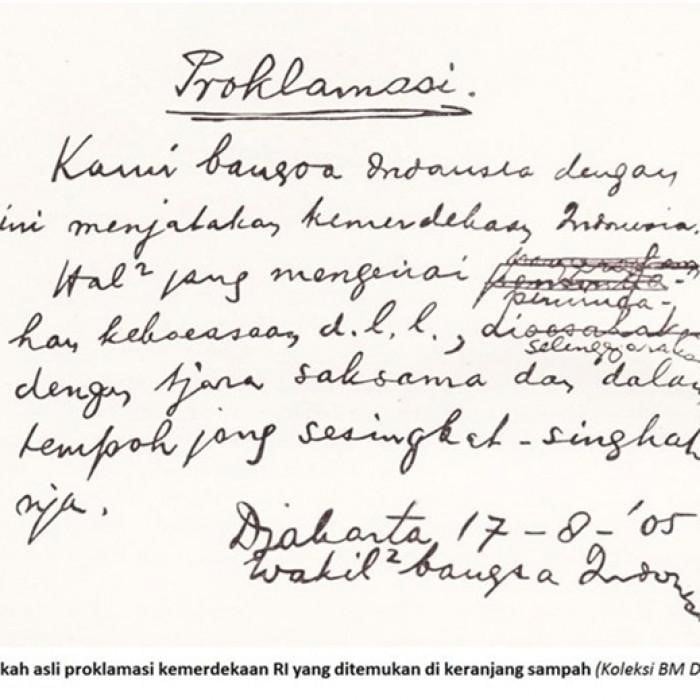 Proklamasi.
Kami bangsa Indonesia dengan
ini menjatakan kemerdekaan Indonesia.
Hal² jang mengenai
peminda-
han kekoeasaan d.l.l.,
dengan tjara saksama dan dalam
tempoh jang sesingkat-singkat
nja.
Djakarta 17-8-'05
Wakil² bangsa Indones
kah asli proklamasi kemerdekaan RI yang ditemukan di keranjang sampah (Koleksi BM D